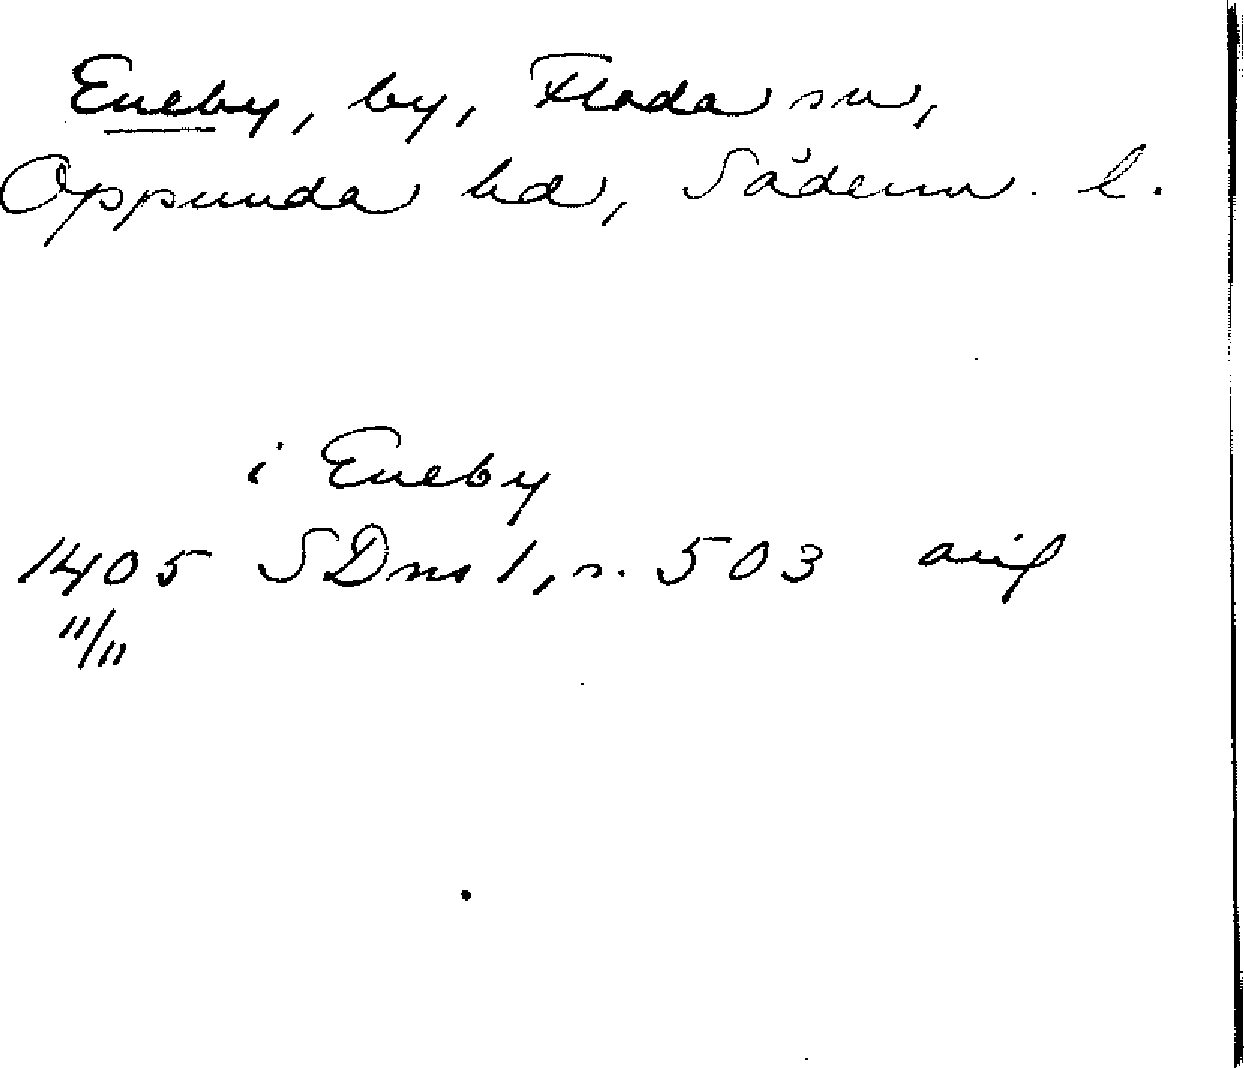 Eneby, by, Floda sn,
Oppunda hd, Söderm. l.
i Eneby
1405 SDns 1, s. 503 avs
11/11